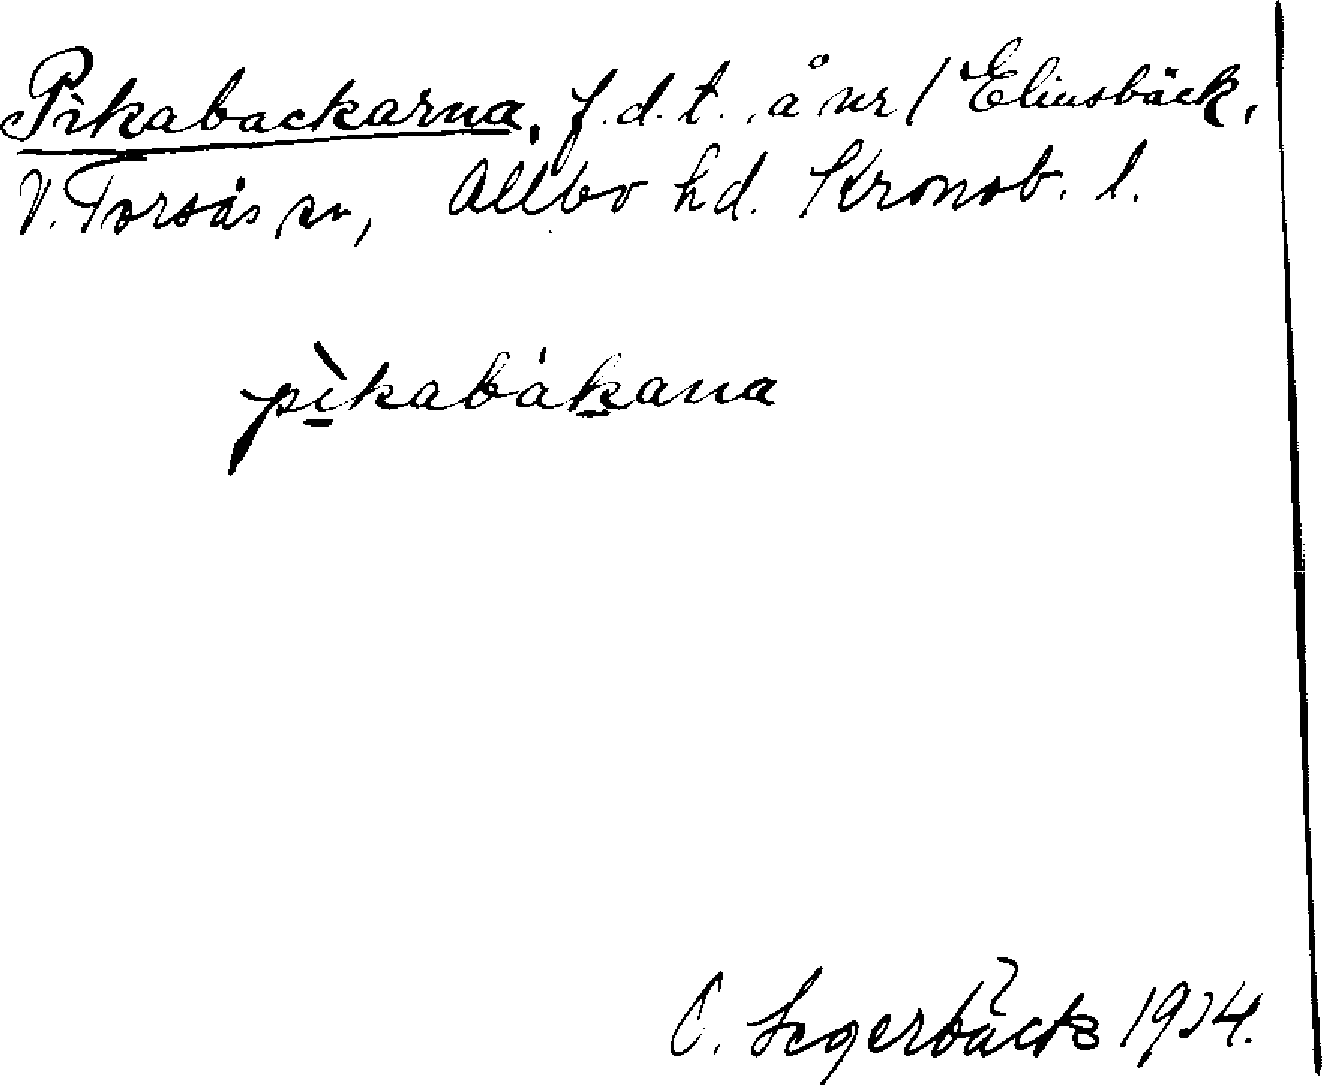 Pikabackarna, f.d.t. å nr 1 Elinsbäck,
V. Torsås sn, Allbo hd. Kronob. l.
pìkabákana
C. Segerbäck